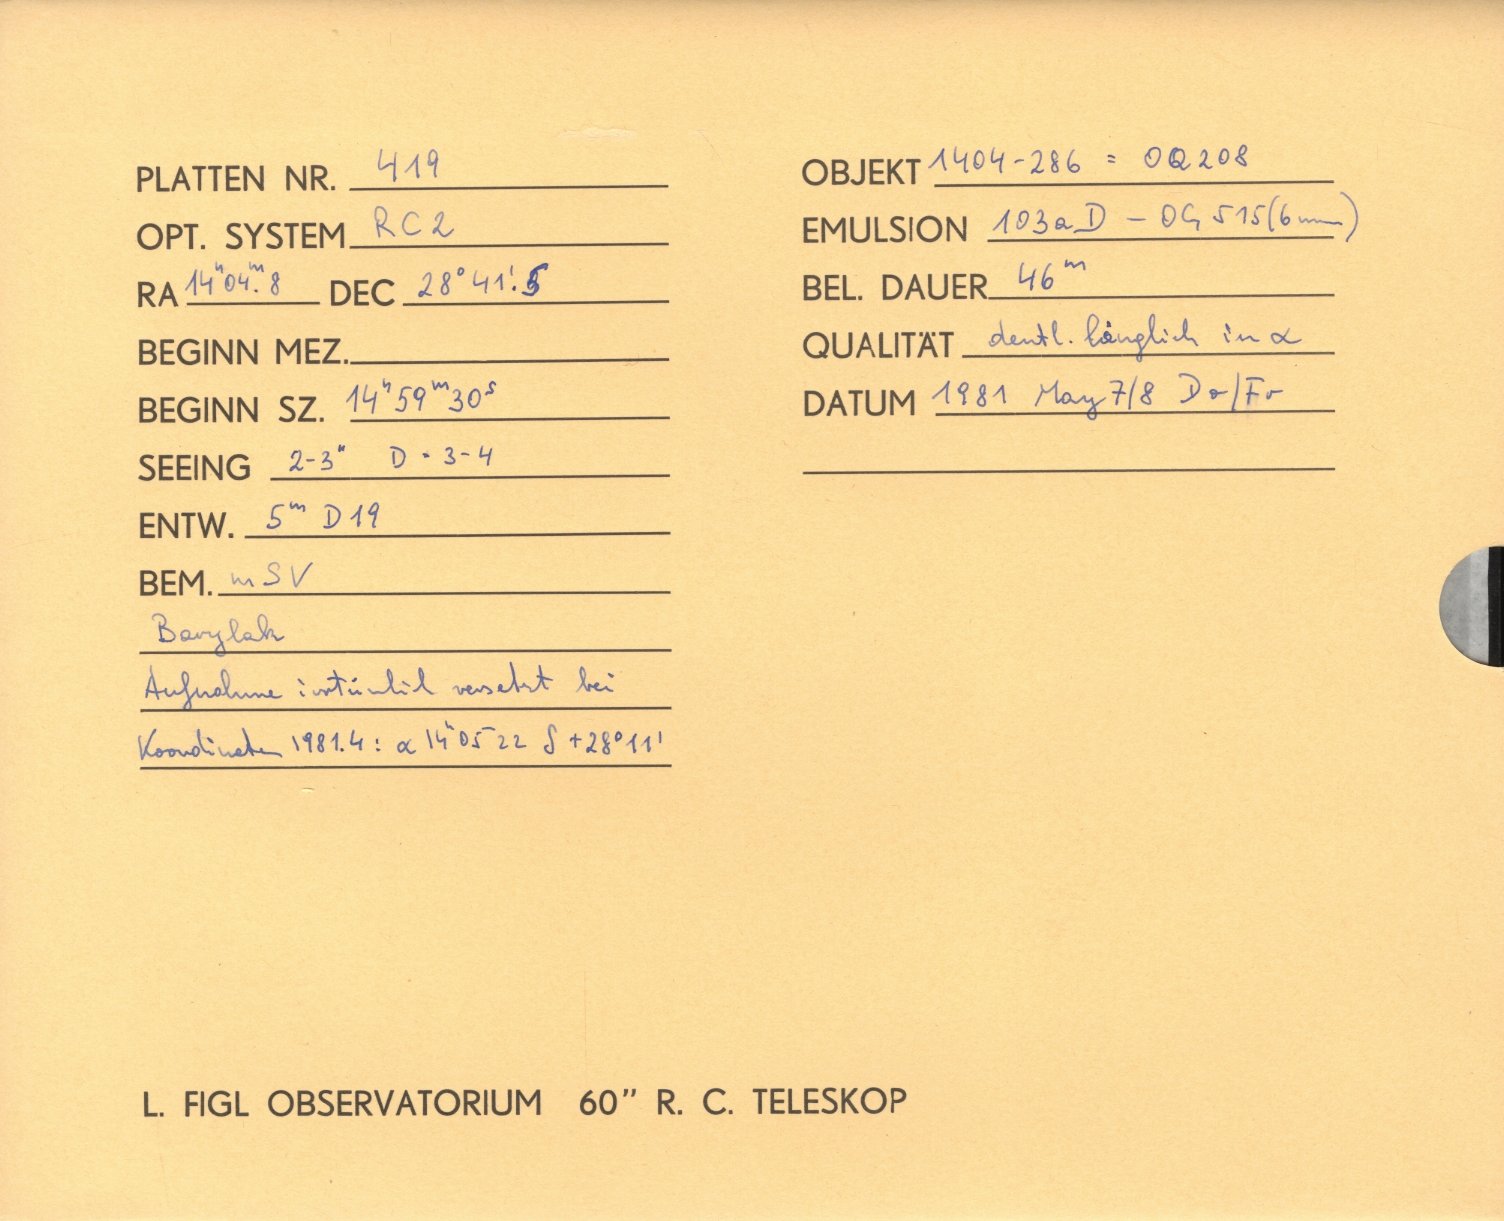 PLATTEN NR. 419
OPT. SYSTEM RC2
RA 14ʰ04ᵐ.8 DEC 28°41'.5
BEGINN MEZ.
BEGINN SZ. 14ʰ59ᵐ30ˢ
SEEING 2-3" D · 3-4
ENTW. 5ᵐ D19
BEM. mSV
Barylak
Aufnahme irrtümlich versetzt bei
Koordinaten 1981.4: α 14ʰ05 22 δ +28°11'
OBJEKT 1404-286 = OQ208
EMULSION 103aD - OG 515 (6mm)
BEL. DAUER 46ᵐ
QUALITÄT deutl. länglich in α
DATUM 1981 May 7/8 Do/Fr
L. FIGL OBSERVATORIUM 60" R. C. TELESKOP